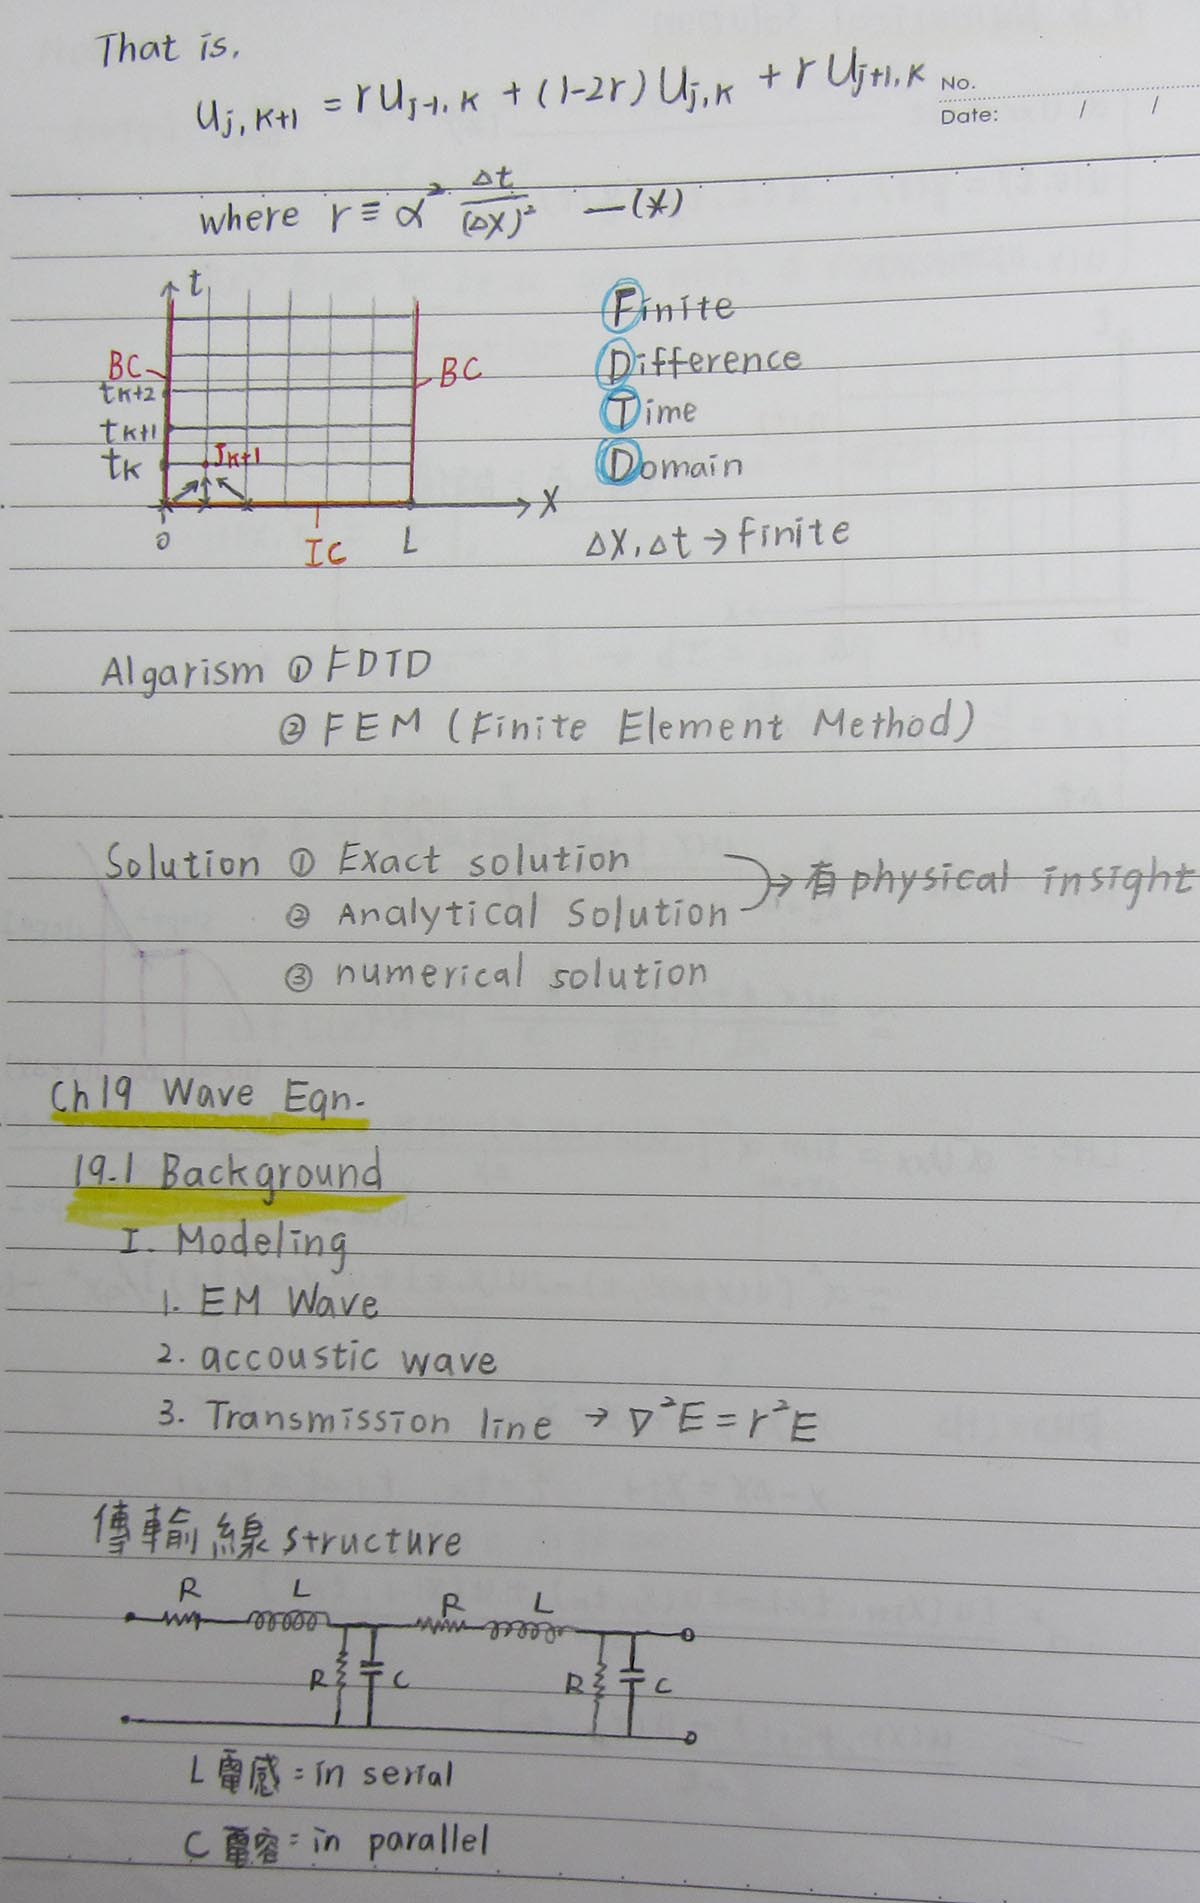 That is,
U_{j,K+1} = rU_{j-1,K} + (1-2r)U_{j,K} + rU_{j+1,K}
No.
Date: / /
where r ≡ α² Δt/(ΔX)² —(*)
t
BC
BC
t_{K+2}
t_{K+1}
t_K
J_{K+1}
X
0
IC
L
Finite
Difference
Time
Domain
ΔX,Δt → finite
Algarism ① FDTD
② FEM (Finite Element Method)
Solution ① Exact solution
② Analytical Solution
→ 有 physical insight
③ numerical solution
Ch19 Wave Eqn.
19-1 Background
I. Modeling
1. EM Wave
2. accoustic wave
3. Transmission line → ∇²E = r²E
傳輸線 structure
R L R L
R C R C
L 電感 = in serial
C 電容 = in parallel